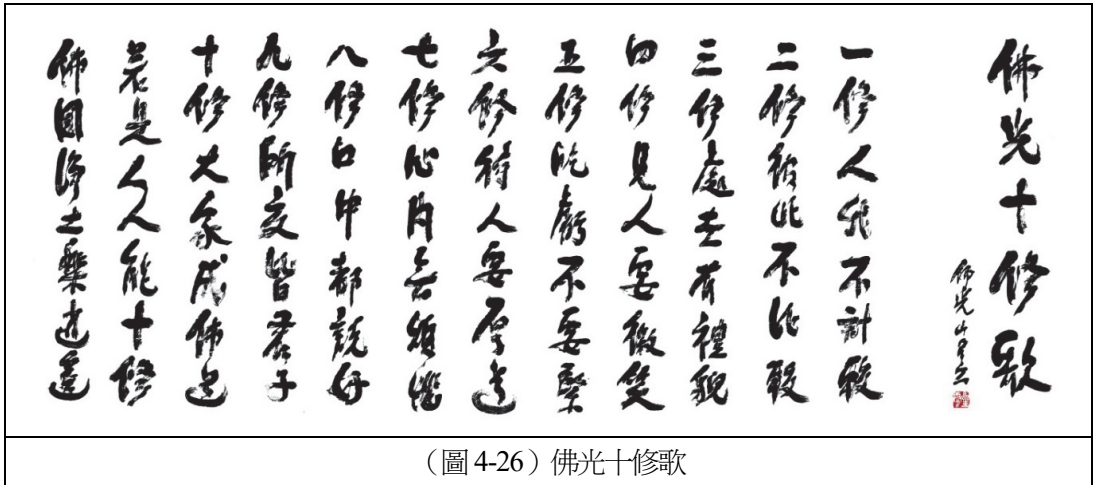 佛光十修歌
佛光山星雲
一修人我不計較
二修彼此不比較
三修處世有禮貌
四修見人要微笑
五修吃虧不要緊
六修待人要厚道
七修心內無煩惱
八修口中都說好
九修所交皆君子
十修大家成佛道
若是人人能十修
佛國淨土樂逍遙
(圖 4-26)佛光十修歌